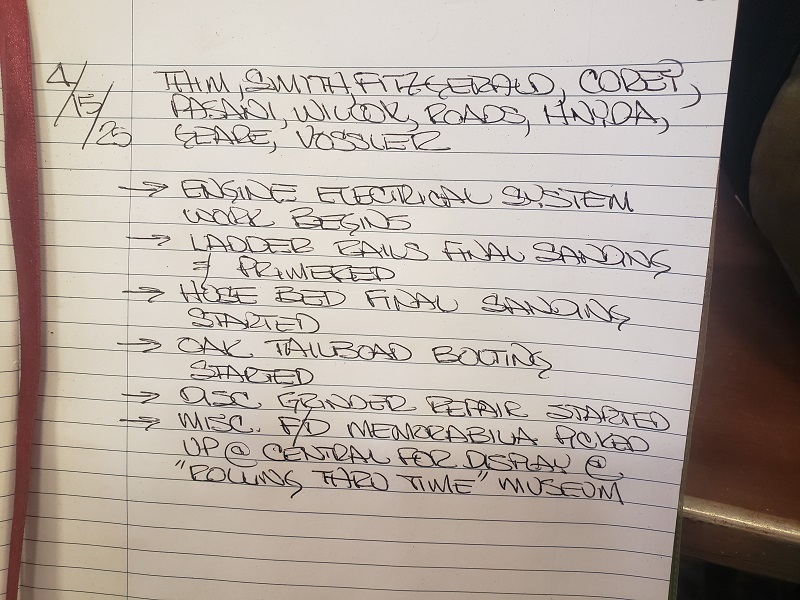 4/15/25
THIM, SMITH, FITZGERALD, COREY,
PASANI, WILCOX, ROADS, HNYDA,
GEARE, VOSSLER
→ ENGINE ELECTRICAL SYSTEM
WORK BEGINS
→ LADDER RAILS FINAL SANDING
& PRIMERED
→ HOSE BED FINAL SANDING
STARTED
→ OAK TAILBOAD
STARTED
→ OSC. GRINDER REPAIR STARTED
→ MISC. F/D MEMORABILIA PICKED
UP @ CENTRAL FOR DISPLAY @
"ROLLING THRU TIME" MUSEUM